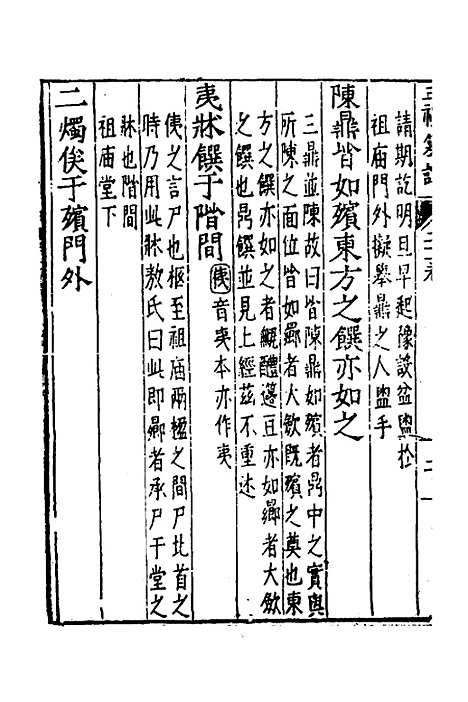 請期訖明旦早起豫設盆盥於
祖庙門外擬舉鼎之人盥手
陳鼎皆如殯東方之饌亦如之
三鼎並陳故曰皆陳鼎如殯者鼎中之實與
所陳之面位皆如曏者大斂既殯之奠也東
方之饌亦如之者觶醴籩豆亦如曏者大斂
之饌也鼎饌並見上經茲不重述
夷牀饌于階間 侇音夷本亦作夷
侇之言尸也柩至祖庙兩楹之間尸北首之
時乃用此牀敖氏曰此即曏者承尸于堂之
牀也階間
祖庙堂下
二燭俟于殯門外